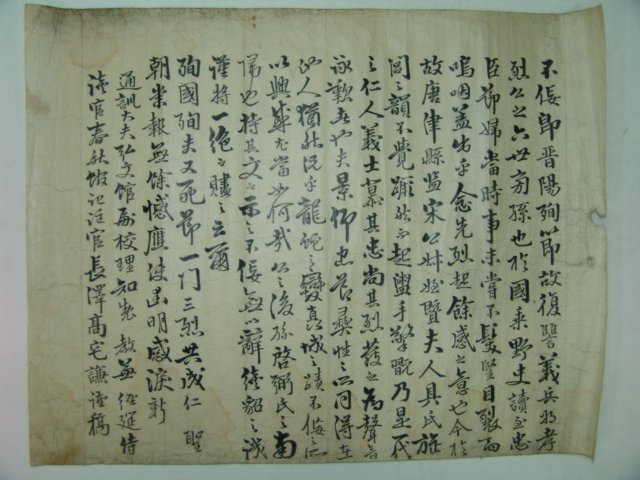 不佞卽晋陽殉節故復讐義兵將孝
烈公之六世旁孫也於國乘野史讀至忠
臣節婦當時事未嘗不髮豎目裂而
嗚咽盖出乎念先烈起餘感之意也今於
故唐津縣監宋公妹姪賢夫人具氏旌
閭之韻不覺蹶然而起盥手擎翫乃是一代
之仁人義士慕其志尚其烈發之爲聲音
詠歎者也夫景仰忠節彝性之所同得在
他人猶然況乎龍蛇之變眞城之蹟不佞之所
以興感尤當如何哉公之後孫啓弼氏之南
歸也持其文而示之不佞無以辭終韶之誠
謹將一絶而賡之云爾
殉國殉夫又死節一門三烈共成仁 聖
朝崇報無餘憾應使幽明感淚新
通訓大夫弘文館副校理知製 教兼 經筵侍
讀官春秋館記注官長澤高宅謙謹稿